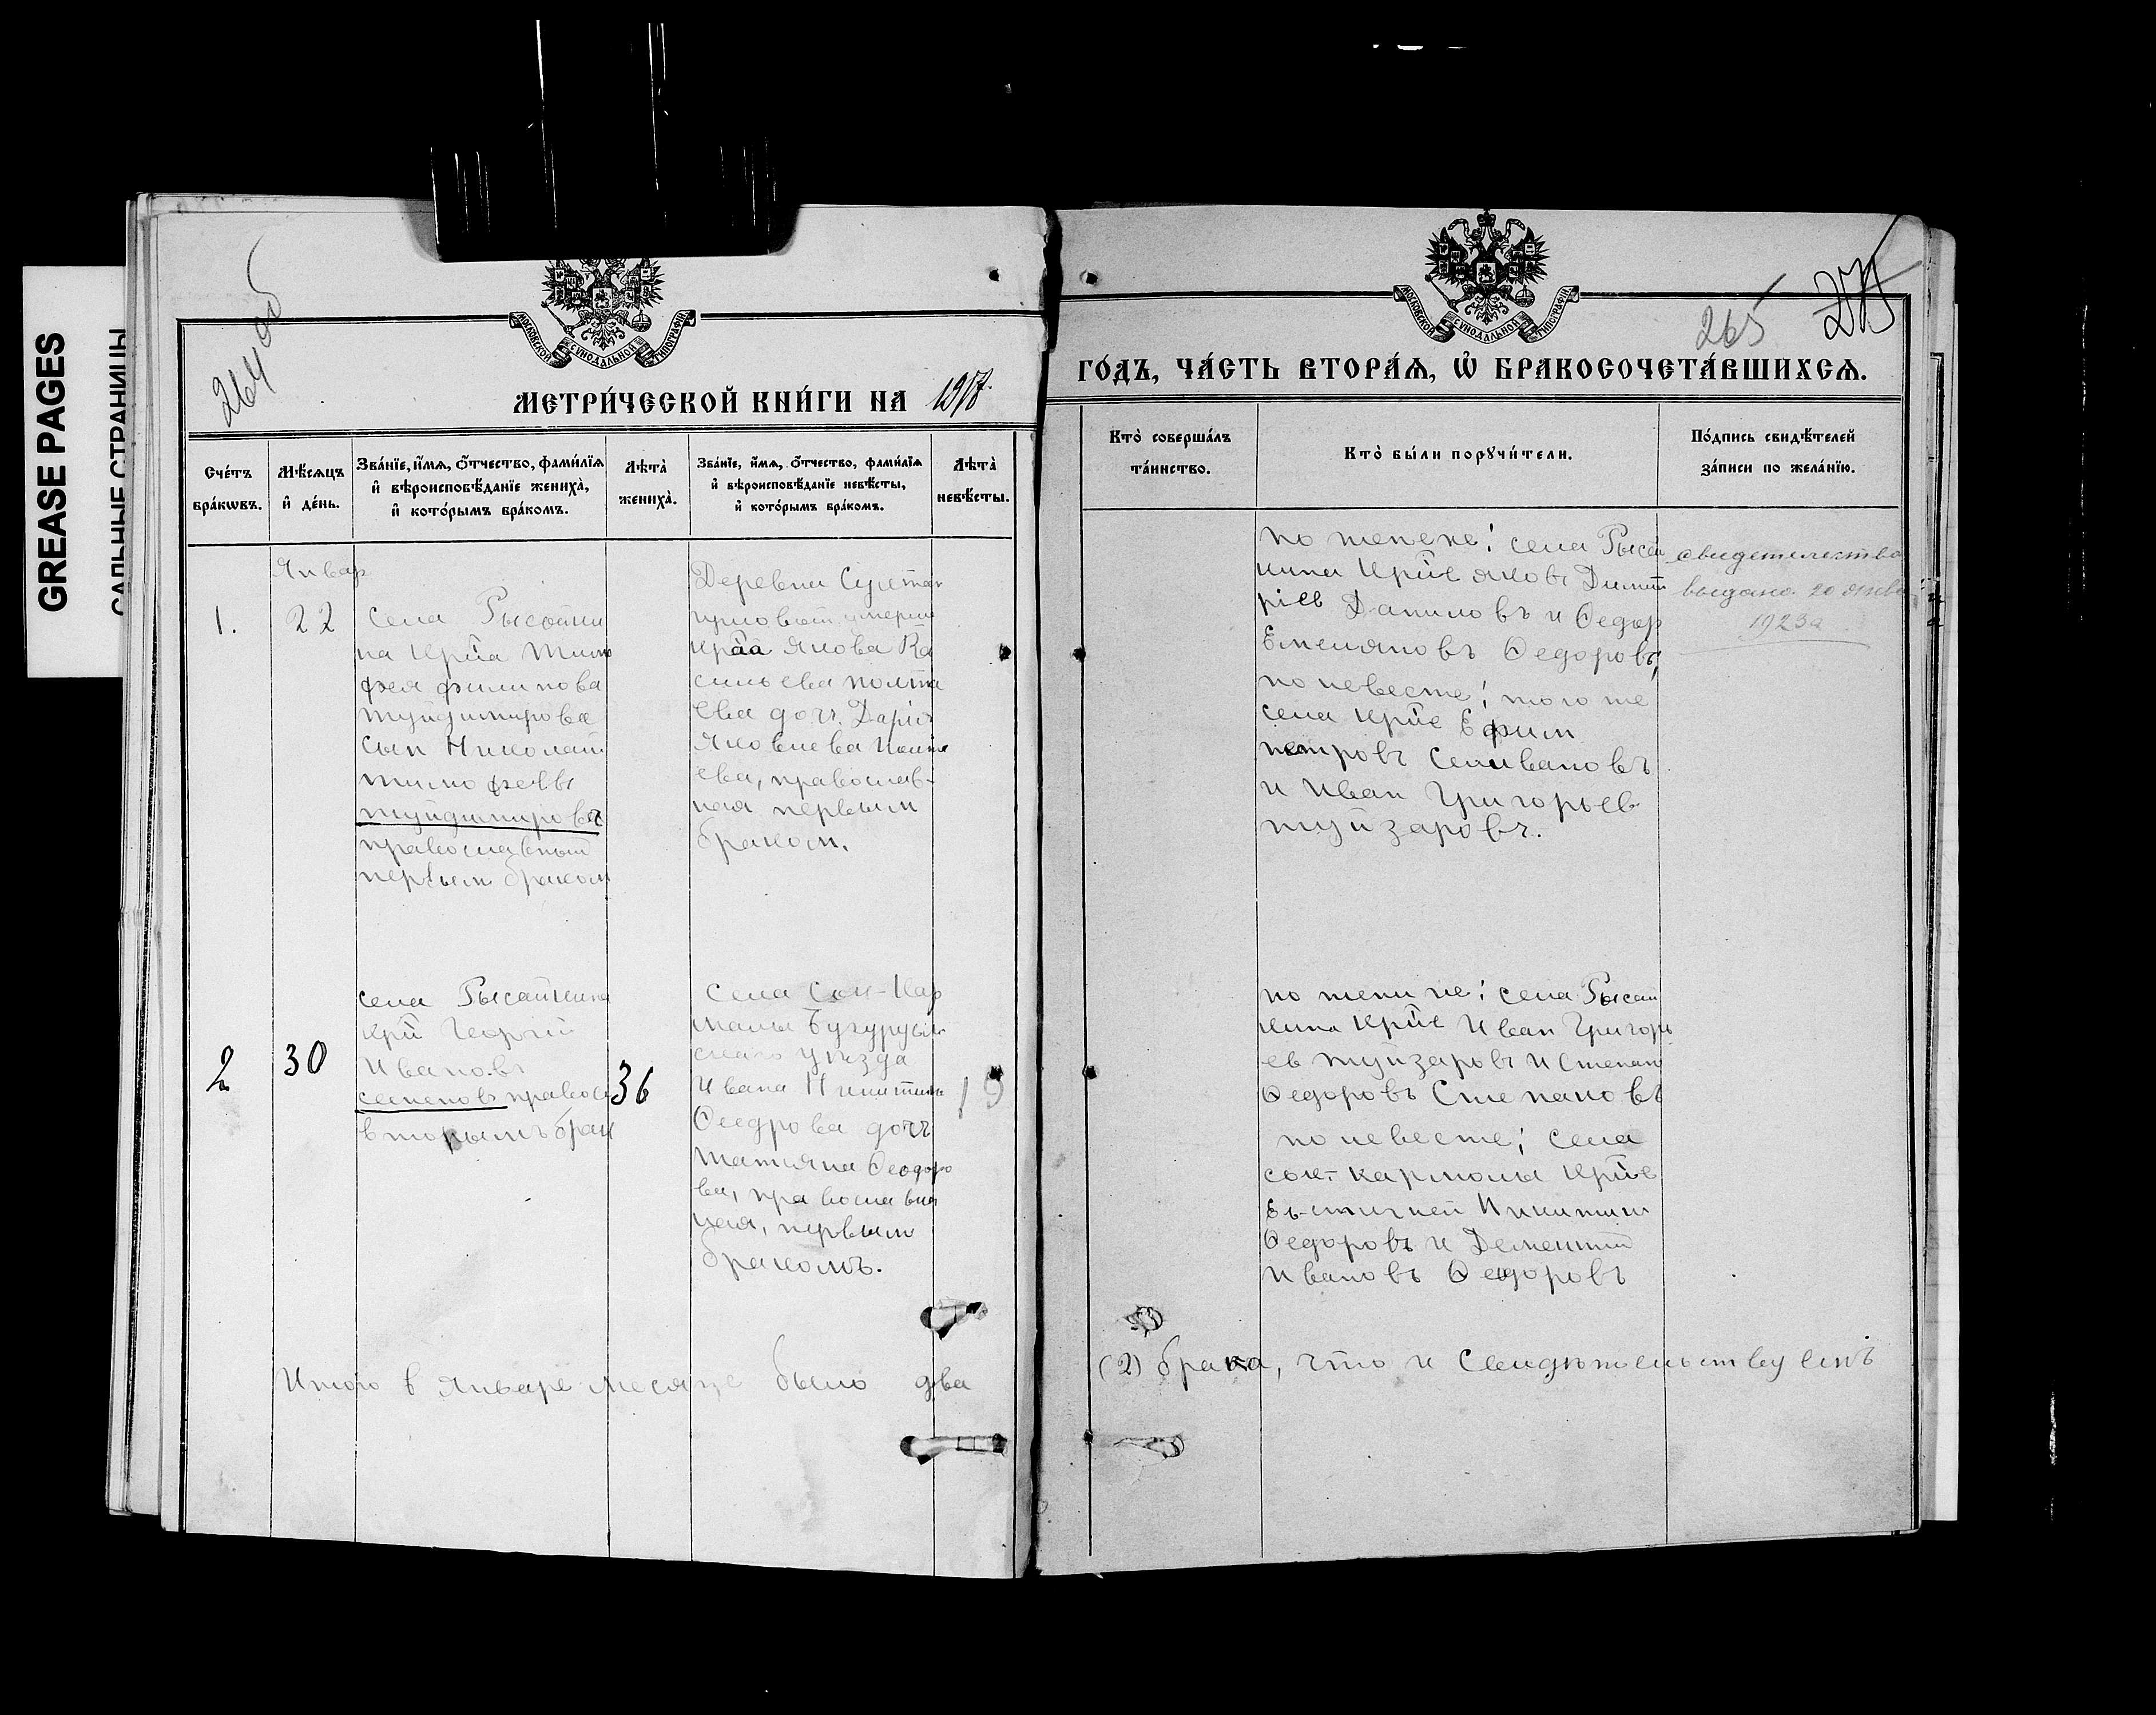 GREASE PAGES
САЛЬНЫЕ СТРАНИЦЫ
264 об
МОСКОВСКОЙ СѴНОДАЛЬНОЙ ТИПОГРАФІИ
МЕТРИ́ЧЕСКОЙ КНИ́ГИ НА
Сче́тъ бра́кωвъ.
Мѣ́сяцъ и҆ де́нь.
Зва́нїе, и҆́мя, ѻ҆́тчество, фами́лїя и҆ вѣроисповѣ́данїе жениха̀, и҆ кото́рымъ бра́комъ.
Лѣта̀ жениха̀.
Зва́нїе, и҆́мя, ѻ҆́тчество, фами́лїя и҆ вѣроисповѣ́данїе невѣ́сты, и҆ кото́рымъ бра́комъ.
Лѣта̀ невѣ́сты.
Январ
1.
22
села Рысайки
на Крйа Тимо
фея филипова
туйдимирова
сын Николай
тимофеевъ
туйдимировъ
православный
первым браком
Деревни
Крйа Якова Ва
сильева
ева доч. Дарія
Яковлева
ева, православ-
ная первым
браком.
2
30
села Рысайкина
крй Георгій
Ивановъ
семеновъ правосл
вторымъ брак
36
села Сок-Кар
малы Бугурусл
скаго уѣзда
Ивана Никитина
Ѳедрова дочь
татияна Ѳеодоро
ва, православ
ная, первым
бракомъ.
19
Итого в январе месяце было два
265
МОСКОВСКОЙ СѴНОДАЛЬНОЙ ТИПОГРАФІИ
ГО́ДЪ, ЧА́СТЬ ВТОРА́Я, Ѽ БРАКОСОЧЕТА́ВШИХСЯ.
Кто̀ соверша́лъ та́инство.
Кто̀ бы́ли порꙋчи́тели.
По́дпись свидѣ́телей за́писи по жела́нїю.
по женехе: села Рысай
кина Крйе яковъ Димит
ріев Даниловъ и Ѳедор
Емеляновъ Ѳедоровъ,
по невесте: того же
села крйе Ефим
петровъ Селивановъ
и Иван Григорьев
туйзаровъ.
свидетельство
выдано 20 янва
1923г
по женихе: села Рысай
кина Крйе Иван Григорь
ев туйзаровъ и Степан
Ѳедоровъ Степановъ
по невесте: села
сок-кармалы Крйе
Евстигней Никитин
Ѳедоровъ и Дементий
Ивановъ Ѳедоровъ
(2) брака, что и свидѣтельствуемъ